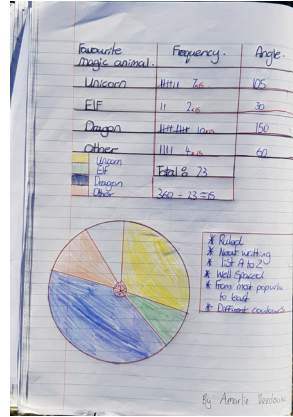 Favourite magic animal. Frequency. Angle.
Unicorn 7x15 105
Elf 11 2x15 30
Dragon 10x15 150
Other 4x15 60
Unicorn
Elf
Dragon
Other
Total: 23
360 ÷ 23 = 15
* Ruled
* Neat writting
* List A to Z
* Well spaced
* From most popular to least
* Different colours
By Amarlie